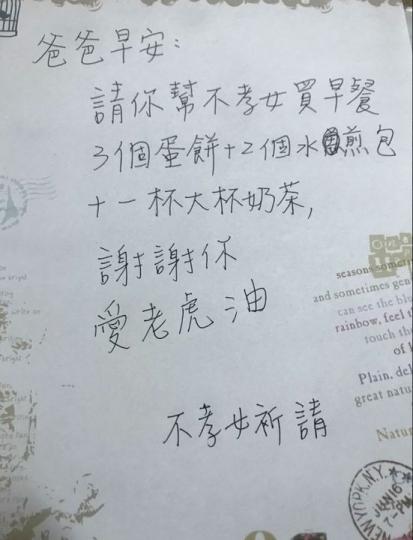 爸爸早安：
請你幫不孝女買早餐
3個蛋餅+2個水煎包
+一杯大杯奶茶，
謝謝你
愛老虎油
不孝女祈請
seasons
and sometimes
can see the
rainbow, feel
touch th
of
Plain, del
great natu
Natur
NEW YORK, N.Y.
JUN 16
7-PM